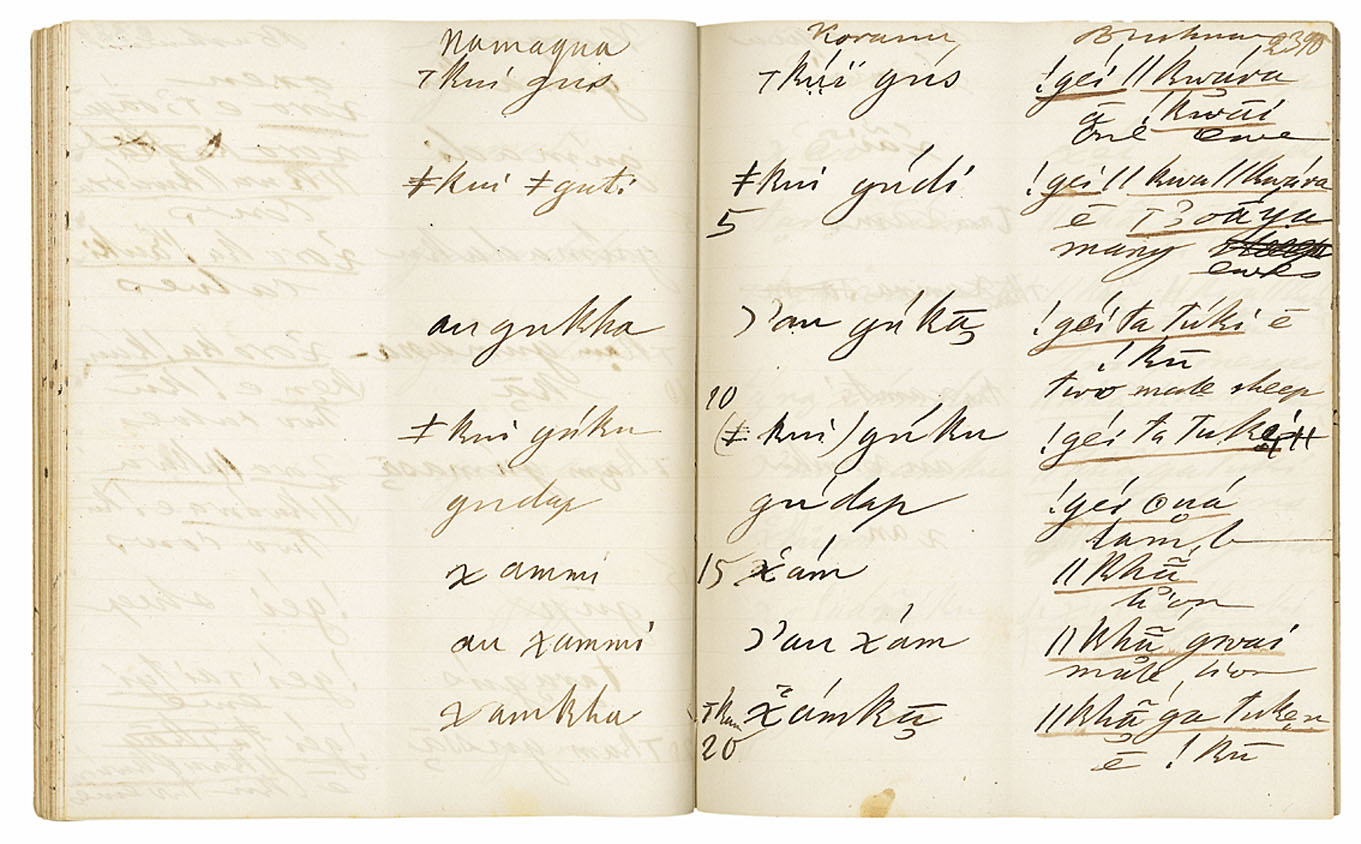 Namaqua
ꞇkui gus
ǂkui ǂguti
au gukha
ǂkui gúku
gudap
χammi
au χammi
χamkha
Koranna
ꞇkúï gús
ǂkui gúdi
5
ɔ'au gúkū
10
(ǂkui) gúku
gúdap
15 χám
ɔ'au χám
ꞇkam χámkū
20
Bushman 2390
!géi ǁkwára
ā !kwāi
one ewe
!géi ǁkwa ǁkwára
ē
many
ewes
!géi ta túki ē
!kū
two male sheep
!géi ta tuken
!géi ʘuá
lamb
ǁkhã
lion
ǁkhã gwai
male lion
ǁkhã ga tuken
ē !kū